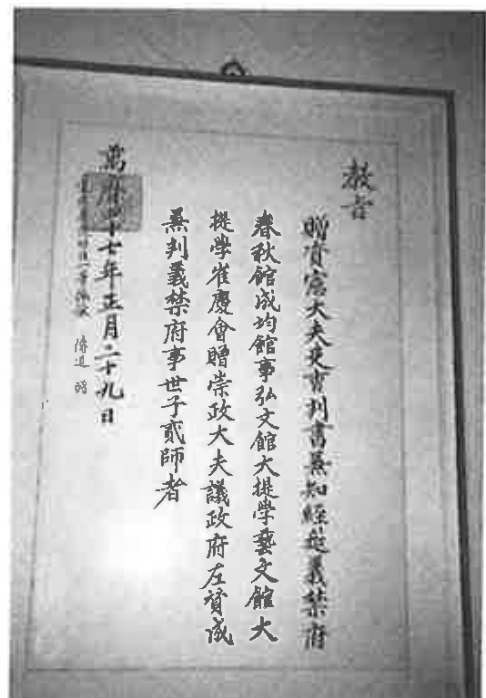 教旨
贈資憲大夫吏曹判書兼知經筵義禁府
春秋館成均館事弘文館大提學藝文館大
提學崔慶會贈崇政大夫議政府左贊成
兼判義禁府事世子貳師者
萬曆十七年五月二十九日